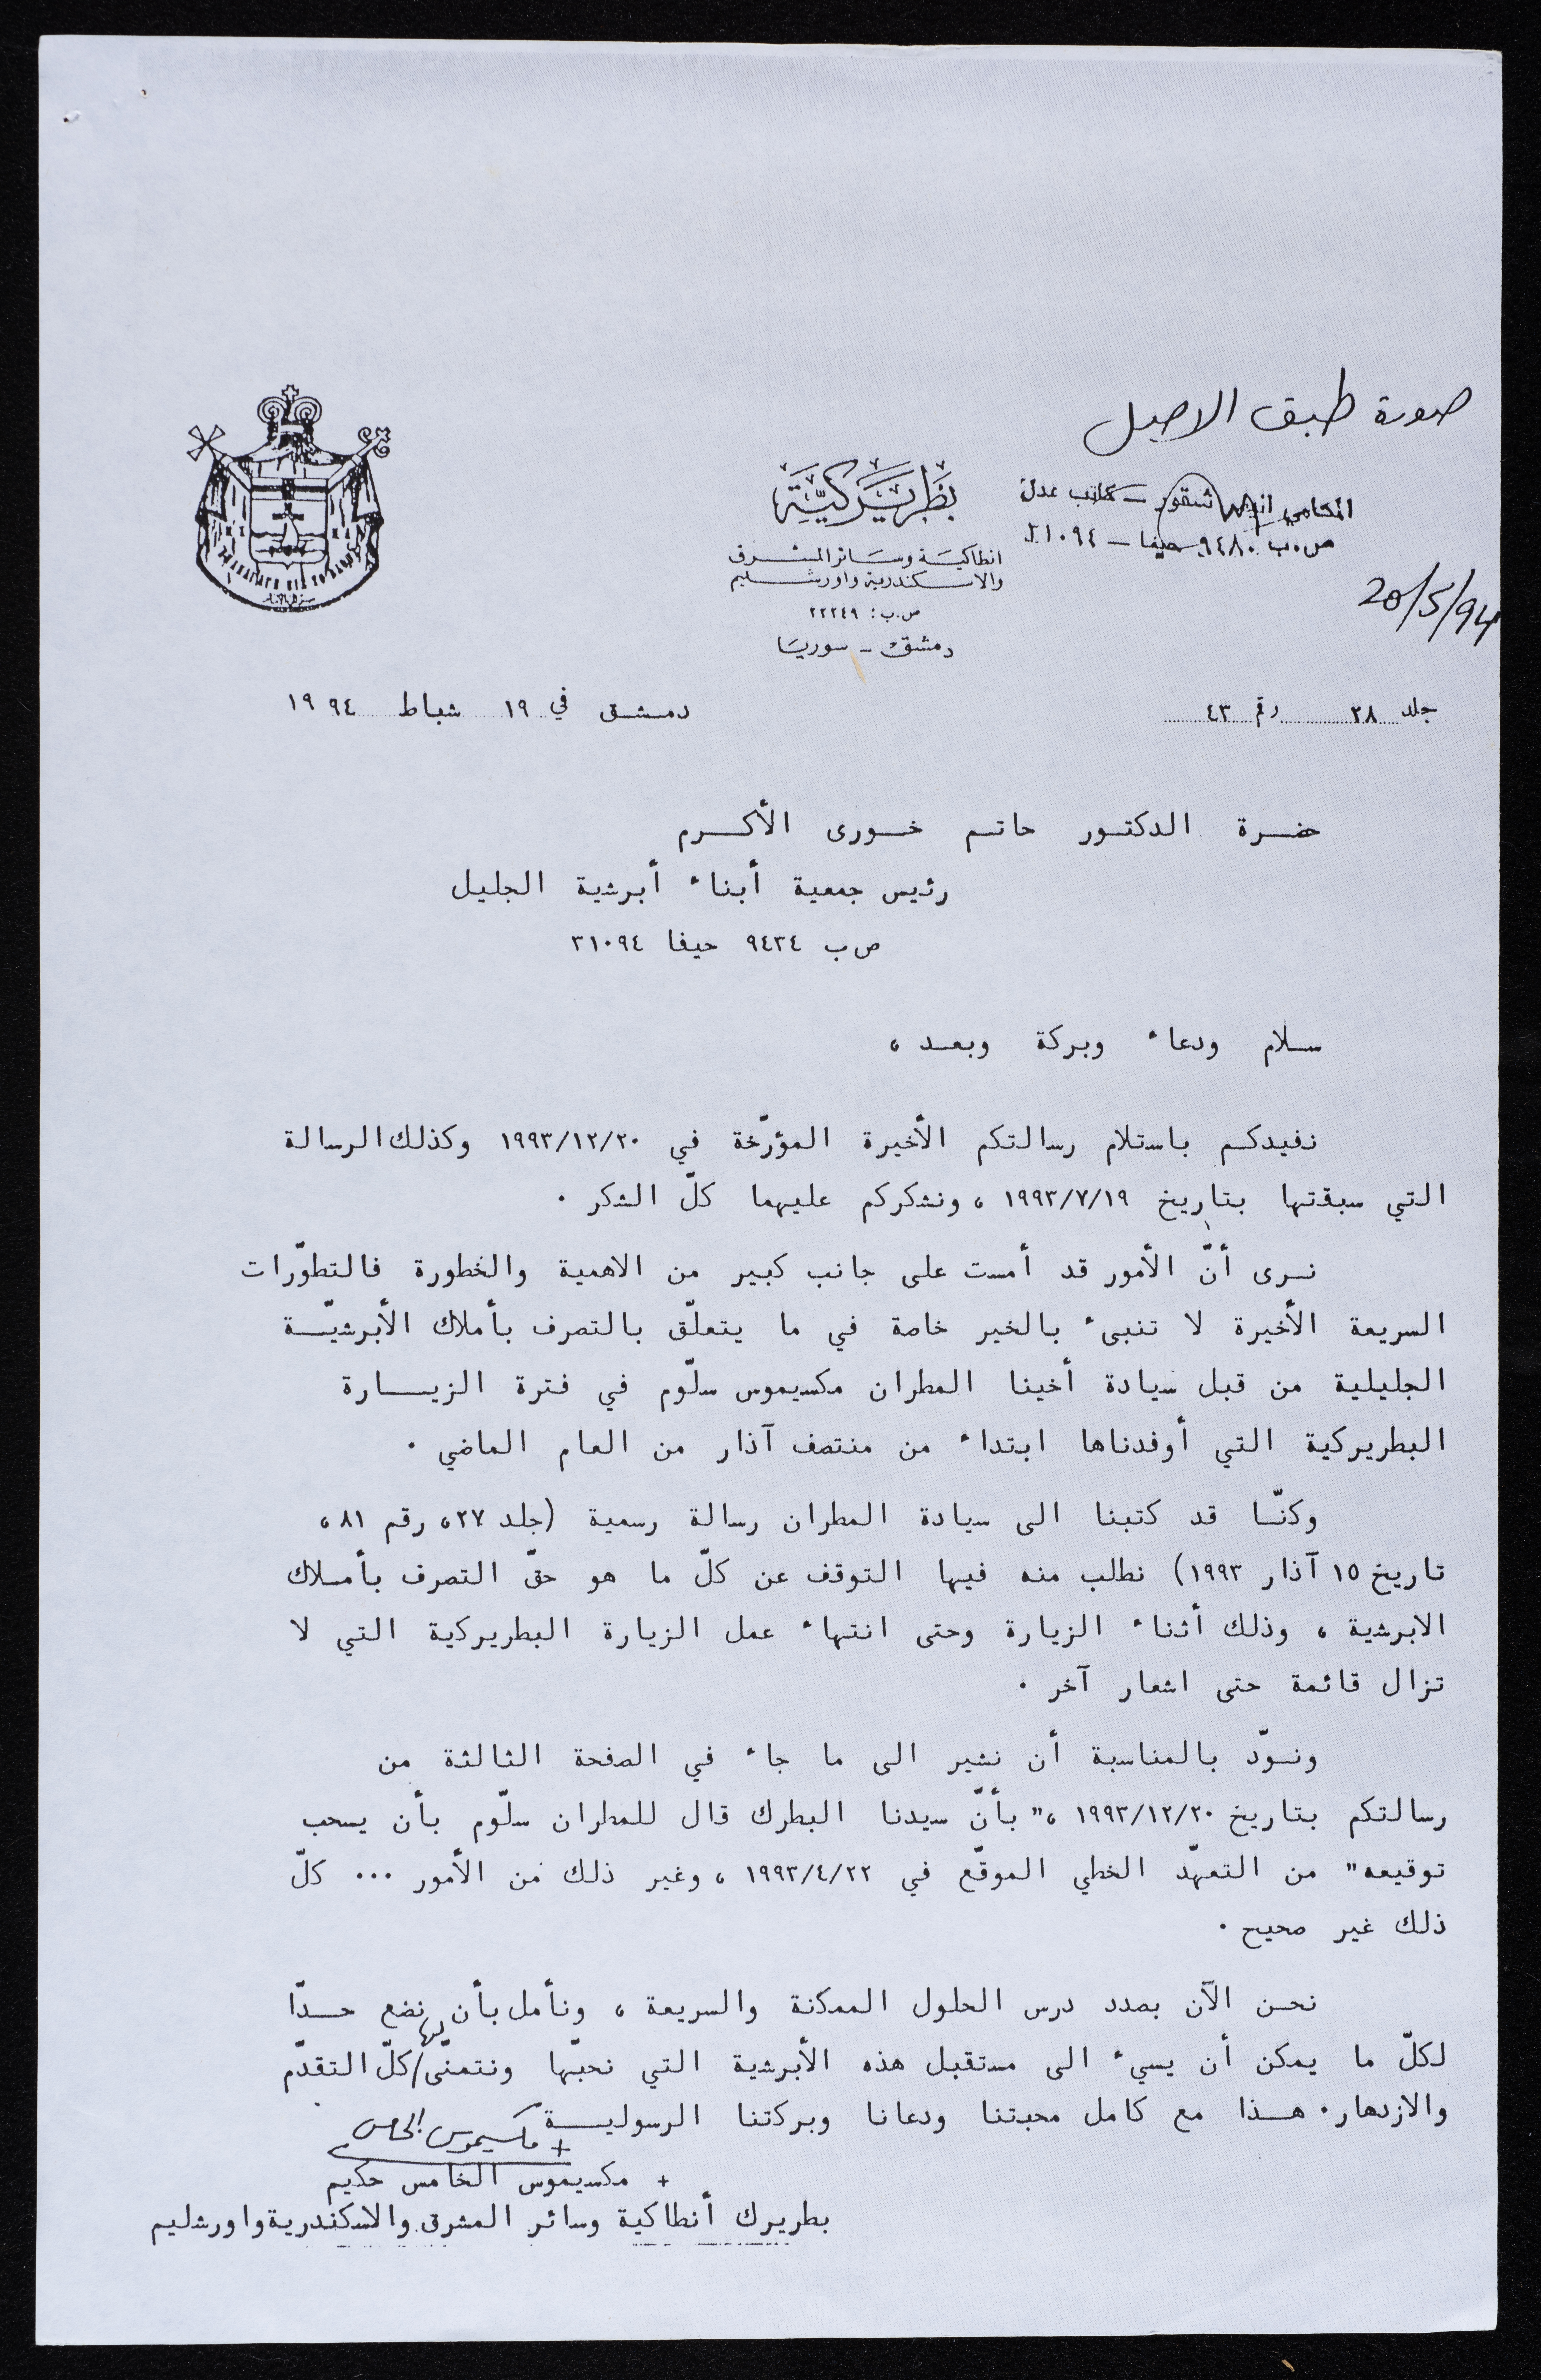 صورة طبق الاصل
المحامي شقور - كاتب عدل
ص.ب. ٩٤٨٠ حيفا - ٣١٠٩٤
20/5/94
بطريركية
انطاكية وسائر المشرق
والاسكندرية واورشليم
ص.ب: ٢٢٢٤٩
دمشق - سوريا
جلد ٢٨ رقم ٤٣
دمشق في ١٩ شباط ١٩٩٤
حضرة الدكتور حاتم خورى الأكرم
رئيس جمعية أبناء أبرشية الجليل
ص ب ٩٤٣٤ حيفا ٣١٠٩٤
سلام ودعاء وبركة وبعد ،
نفيدكم باستلام رسالتكم الأخيرة المؤرّخة في ١٩٩٣/١٢/٢٠ وكذلك الرسالة
التي سبقتها بتاريخ ١٩٩٣/٧/١٩ ، ونشكركم عليهما كلّ الشكر .
نرى أنّ الأمور قد أمست على جانب كبير من الاهمية والخطورة فالتطوّرات
السريعة الأخيرة لا تنبىء بالخير خاصة في ما يتعلّق بالتصرف بأملاك الأبرشيّة
الجليلية من قبل سيادة أخينا المطران مكسيموس سلّوم في فترة الزيارة
البطريركية التي أوفدناها ابتداء من منتصف آذار من العام الماضي .
وكنّا قد كتبنا الى سيادة المطران رسالة رسمية (جلد ٢٧، رقم ٨١ ،
تاريخ ١٥ آذار ١٩٩٣) نطلب منه فيها التوقف عن كلّ ما هو حقّ التصرف بأملاك
الابرشية ، وذلك أثناء الزيارة وحتى انتهاء عمل الزيارة البطريركية التي لا
تزال قائمة حتى اشعار آخر .
ونودّ بالمناسبة أن نشير الى ما جاء في الصفحة الثالثة من
رسالتكم بتاريخ ١٩٩٣/١٢/٢٠ ،" بأنّ سيدنا البطرك قال للمطران سلّوم بأن يسحب
توقيعه" من التعهّد الخطي الموقّع في ١٩٩٣/٤/٢٢ ، وغير ذلك من الأمور ... كلّ
ذلك غير صحيح .
نحن الآن بصدد درس الحلول الممكنة والسريعة ، ونأمل بأن نضع حدّا
لكلّ ما يمكن أن يسيء الى مستقبل هذه الأبرشية التي نحبّها ونتمنّى/لها كلّ التقدّم
والازدهار. هذا مع كامل محبتنا ودعانا وبركتنا الرسولية
+ مكسيموس الخامس
+ مكسيموس الخامس حكيم
بطريرك أنطاكية وسائر المشرق والاسكندرية واورشليم